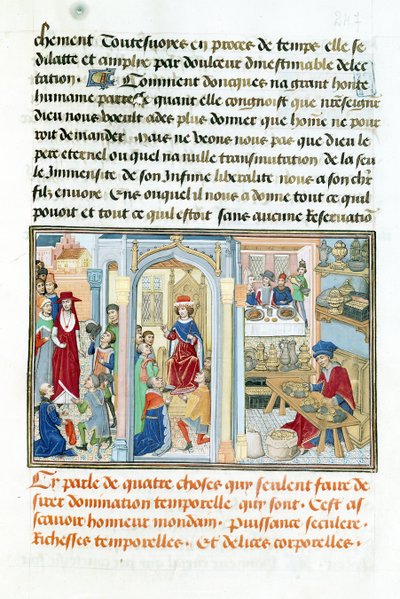 247
chement Toutesuoyes en proces de temps elle se
dilatte et amplie par doulceur dinestimable delec
tation. Comment doncques na grant honte
humame quant elle congnoist que nreseignr
dieu nous veult ades plus donner que home ne pour
roit demander / Mais ne veons nous pas que dieu le
pere eternel ou quel na nulle transmutation de la seu
le Immensite de son Infinie liberalite nous a son chr
filz enuoye / Ens ouquel il nous a donne tout ce quil
pouoit et tout ce quil estoit sans aucune Reseruatio
Cy parle de quatre choses quy seulent faire de
sirer domination temporelle quy sont. Cest as
scauoir honneur mondam. Puissance seculere.
Richesses temporelles. Et delices corporelles.